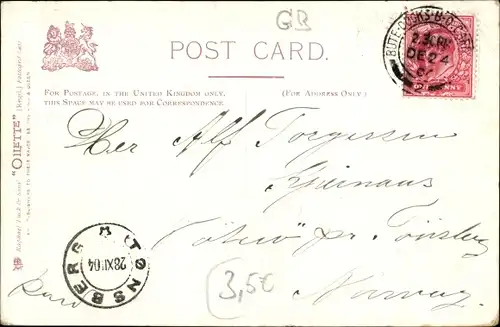 GB
POST CARD.
FOR POSTAGE, IN THE UNITED KINGDOM ONLY,
THIS SPACE MAY BE USED FOR CORRESPONDENCE.
(FOR ADDRESS ONLY.)
Raphael Tuck & Sons' "OILETTE" [Regd.]
BUTE-DOCKS-B.O.
DE 24
ONE PENNY
Herr Alf Torgersen
pr. Tönsberg
Norway
TØNSBERG
28 XII 04
3,50